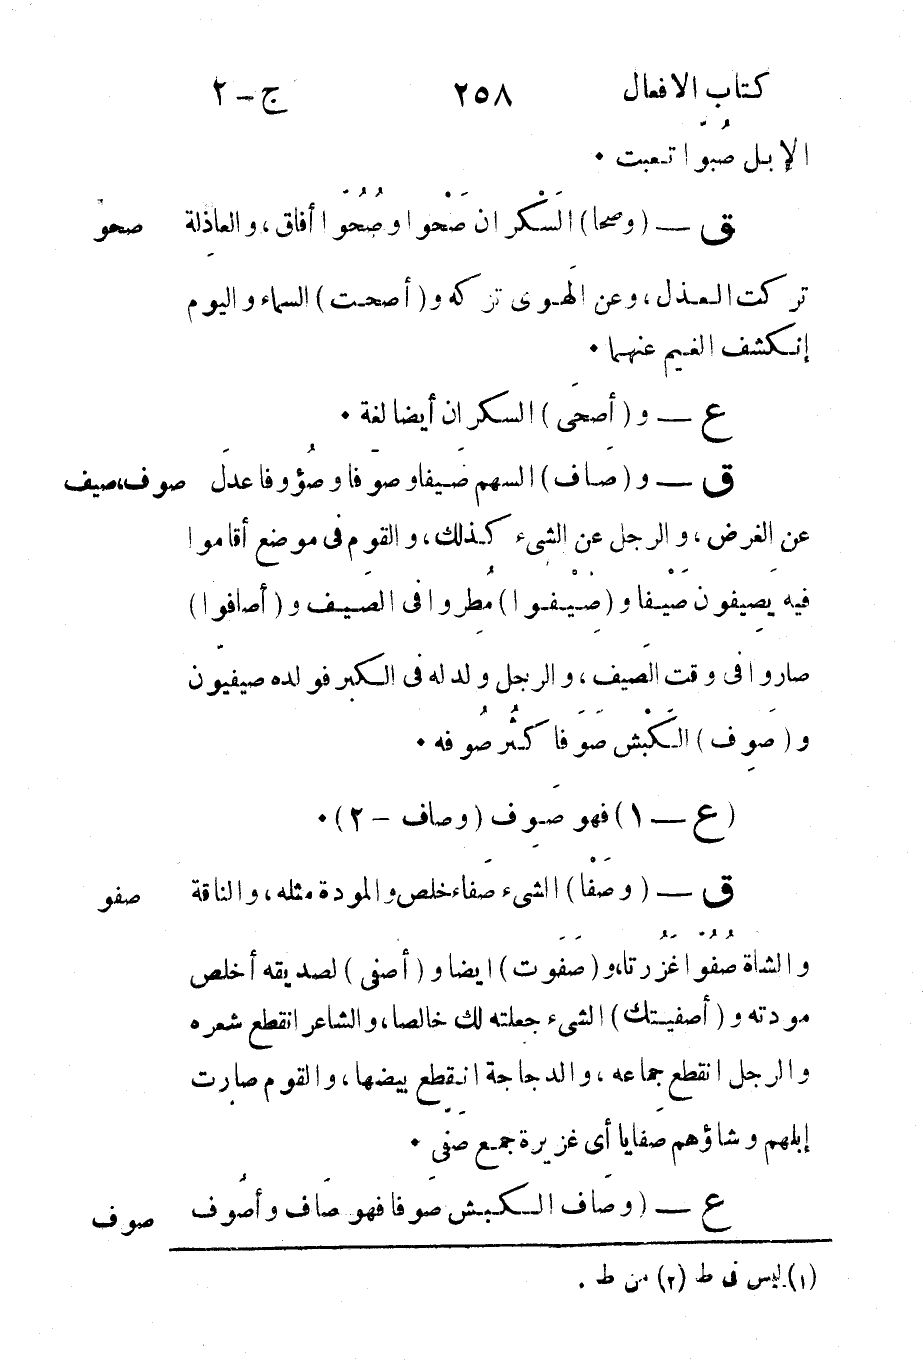 كتاب الافعال ٢٥٨ ج - ٢
الإبل صُبُوّا تعبت .
ق — ( وصحا ) السَّكران صَحْوا وصُحُوّا أفاق ، والعاذِلة صحو
تركت العذل ، وعن الهَوى تركه و ( أصحت ) السماء واليوم
إنكشف الغيم عنهما .
ع — و ( أصحَى ) السكران أيضا لغة .
ق — و ( صَاف ) السهم صَيفا وصوّفا وصُؤوفا عدلَ صوف،صيف
عن الغرض ، والرجل عن الشيء كذلك ، والقوم فى موضع أقاموا
فيه يَصِيفون صَيْفا و ( صُِيْفُوا ) مُطِروا فى الصَيف و ( أصافوا )
صاروا فى وقت الصَيف ، والرجل ولد له فى الكِبر فولده صيفيّون
و ( صَوِف ) الكَبْش صَوَفا كثُر صُوفه .
( ع — ١ ) فهو صَوِف ( وصاف - ٢ ) .
ق — ( وصَفْا ) الشيء صَفاء خلص والمودة مثله ، والناقة صفو
والشاة صُفُوّا غَزُرتا، و ( صَفَوت ) ايضا و ( أصفى ) لصديقه أخلص
مودته و ( أصفيتك ) الشيء جعلته لك خالصا، والشاعر انقطع شعره
والرجل انقطع جِماعه ، والدجاجة انقطع بيضها ، والقوم صارت
إبلهم وشاؤهم صَفايا أى غزيرة جمع صَفّى .
ع — ( وصَاف الكبش صَوفا فهو صَاف وأصُوف صوف
(١) ليس فى ط (٢) من ط .